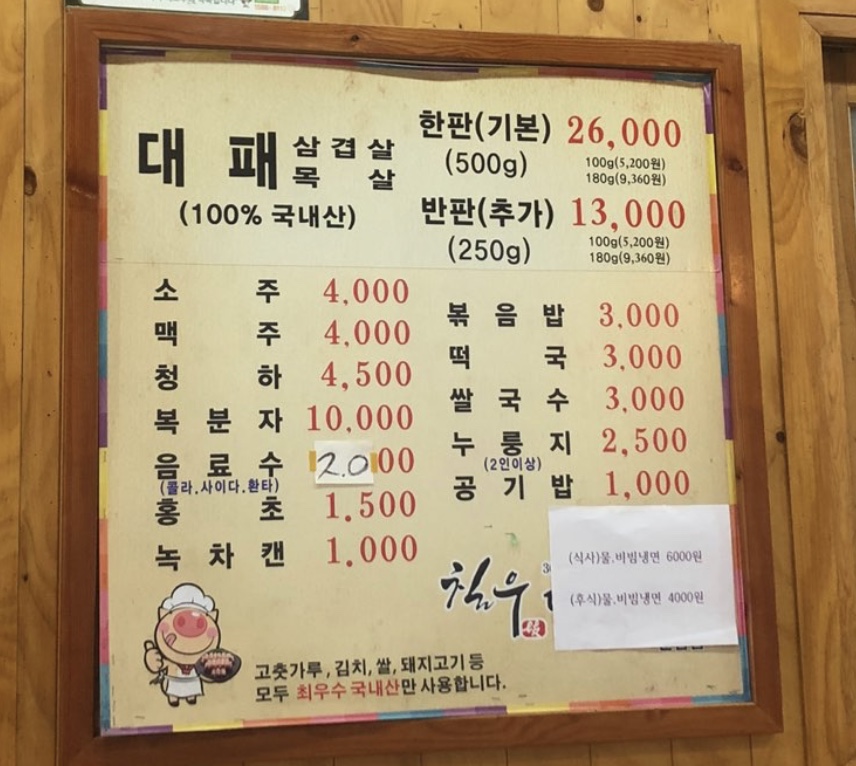 대패 삼겹살
목살
(100% 국내산)
한판(기본) 26,000
(500g)
100g(5,200원)
180g(9,360원)
반판(추가) 13,000
(250g)
100g(5,200원)
180g(9,360원)
소주 4,000
맥주 4,000
청하 4,500
복분자 10,000
음료수 2.000
(콜라.사이다.환타)
홍초 1.500
녹차캔 1.000
볶음밥 3,000
떡국 3,000
쌀국수 3,000
누룽지 2,500
(2인이상)
공기밥 1,000
칠우
(식사)물.비빔냉면 6000원
(후식)물.비빔냉면 4000원
고춧가루, 김치, 쌀, 돼지고기 등
모두 최우수 국내산만 사용합니다.